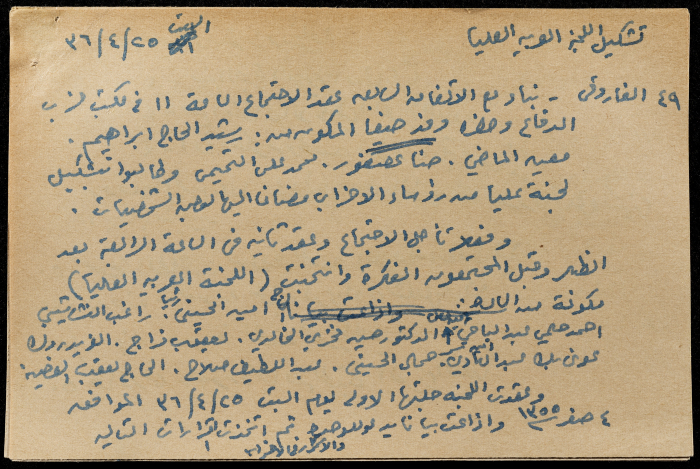 تشكيل اللجنة العربيه العليا
السبت
٣٦/٤/٢٥
٤٩ الفاروقي - بناء مع الاتفاق السابعه عقد الاجتماع الساعة ١١ في مكتب حزب
الدفاع وحضره وفد حيفا المكون من: رشيد الحاج ابراهيم.
معين الماضي. حنا عصفور. محمد علي التميمي وطالبوا بتشكيل
لجنة عليا من رؤساء الاحزاب مضافا اليها بعض الشخصيات.
وفعلا تأجل الاجتماع وعقد ثانيه في الساعة الرابعة بعد
الظهر وقبل المجتمعون الفكرة وانتخبت (اللجنة العربيه العليا)
مكونة من السادة: الحاج امين الحسيني رئيسا راغب النشاشيبي
احمد حلمي عبد الباقي الدكتور حسين فخري الخالدي. يعقوب فراج. الفرد روك
عوني بك عبد الهادي جمال الحسيني. عبد اللطيف صلاح. الحاج يعقوب الغصين
وعقدت اللجنه جلستها الاولى يوم السبت ٣٦/٤/٢٥ الموافق
٤ صفر ١٣٥٥ واذاعت بيانا ثم اتخذت القرارات التاليه